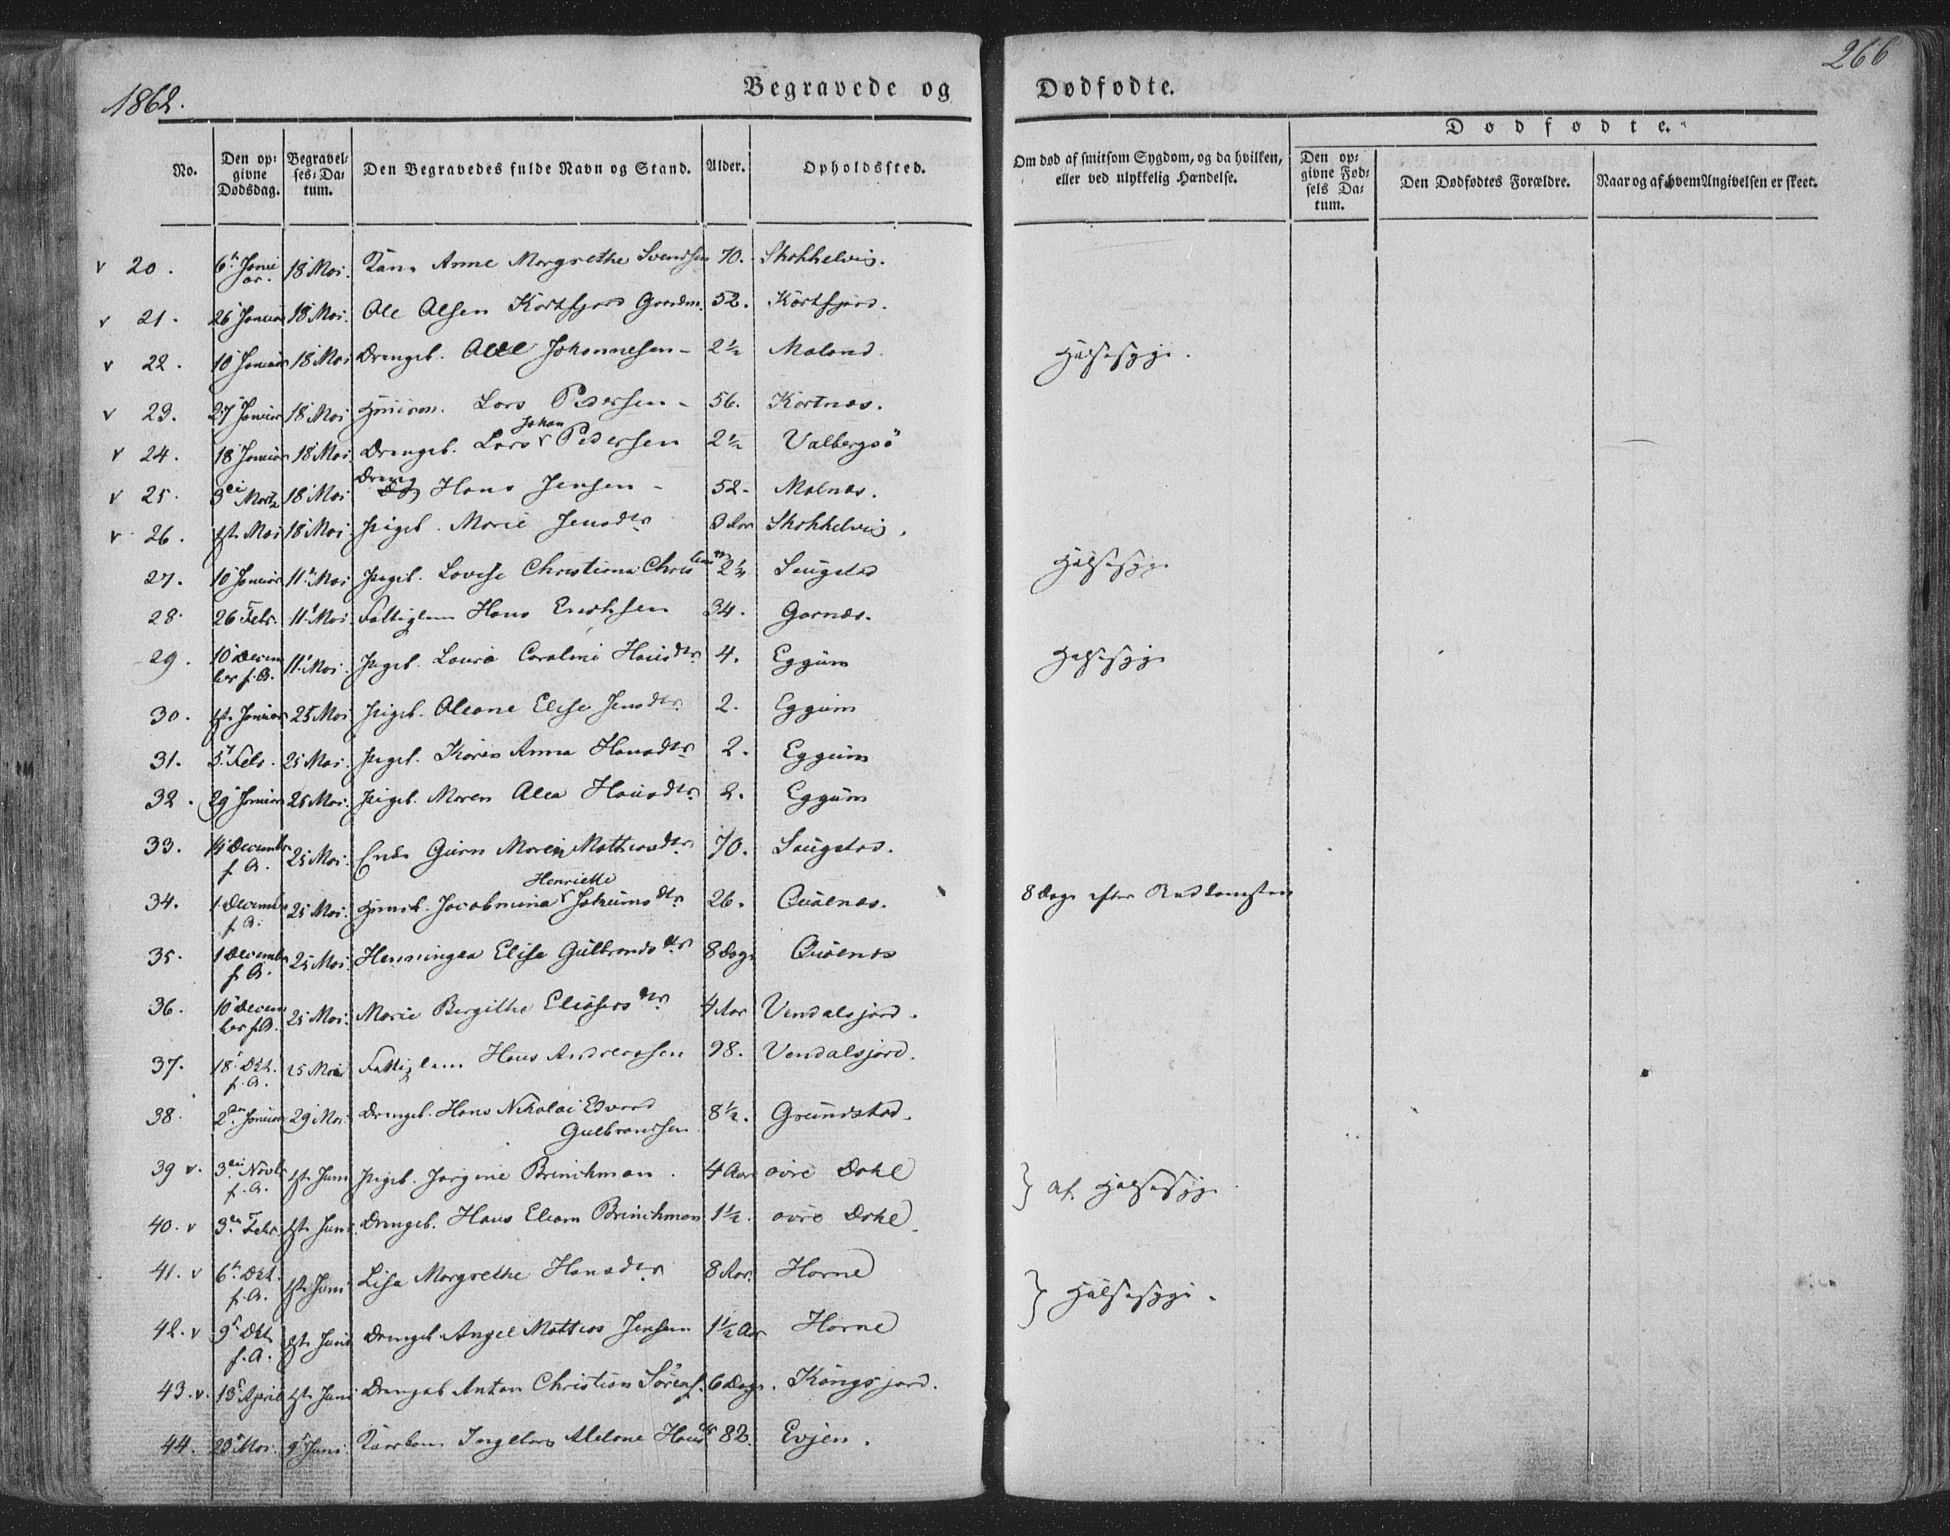 1862.
Begravede og Dødfødte.
266
No.
Den opgivne Dødsdag.
Begravelses-Datum.
Den Begravedes fulde Navn og Stand.
Alder.
Opholdssted.
Om død af smitsom Sygdom, og da hvilken, eller ved ulykkelig Hændelse.
Dødfødte.
Den opgivne Fødsels Datum.
Den Dødfødtes Forældre.
Naar og af hvem Angivelsen er skeet.
v 20. 6te Januar. 18 Mai. Anne Margrethe Svendsen 70.
v 21. 26 Januar 18 Mai. Ole Olsen Kortfjord 52. Kortfjord.
v 22. 10 Januar 18 Mai Drengeb. Johannesen - 2½ Moland. Halssyge.
v 23. 27 Januar 18 Mai Lars Pedersen - 56. Kortnæs.
v 24. 18 Januar 18 Mai. Drengeb. Lars Johan Pedersen 2½ Valbergsö
v 25. 3die Marts 18 Mai Dreng Hans Jensen - 52. Molnæs.
v 26. 1ste Mai 18 Mai Pigeb. Marie Jensdtr 3 Aar
27. 10 Januar 11te Mai Pigeb. Lovise Christiana 2½ Saugstad Halssyge
28. 26 Febr. 11 Mai. Fattiglem Hans 34. Gornæs.
29. 10 December f. A. 11 Mai. Pigeb. Laura Caroline Hansdtr. 4. Eggum Halssyge
30. 1ste Januar 25 Mai Pigeb. Oleane Elise Jensdtr. 2. Eggum
31. 5 Febr. 25 Mai. Pigeb. Karen Anna Hansdtr. 2. Eggum
32. 29 Januar 25 Mai. Pigeb. Maren Olea Hansdtr. 2. Eggum
33. 14 December f. A. 25 Mai. Maren Mathiasdtr. 70. Saugstad.
34. 1 December f. A. 25 Mai. Jacobmina Henriette dtr. 26. 8 Dage efter Nedkomsten
35. 1 December f. A. 25 Mai. Henningea Elise Gulbrandsdtr. 8 Dage
36. 10 December f. A. 25 Mai. Marie Bergithe Eliasersdtr. 4 Aar Vendalsjord.
37. 18 Dec. f. A. 25 Mai Fattiglem Hans Andreassen 98. Vendalsjord.
38. 2den Januar 29 Mai. Drengeb. Hans Nikolai Edvard Gulbrandsen 8½. Grundstad.
39 v. 3die Novbr f. A. 1ste Juni Pigeb. Jørgine Brinchman. 4 Aar øvre Dahl } Af. Halssyge
40. v 3die Febr. 1ste Juni. Drengeb. Hans Brinchman 1½. øvre Dahl
41. v 6te Dec. f. A. 1ste Juni Lisa Margrethe Hansdtr 8 Aar. Horne } Halssyge.
42. v 9 Dec. f. A. 1ste Juni Drengeb. Angel Mathias Jensen 1½ Aar Horne
43. v. 13 April 1ste Juni Drengeb Anton Christian Sørens. 6 Dage. Kongsjord.
44. 23 Mai. 9 Juni. Hans 82. Evjen.